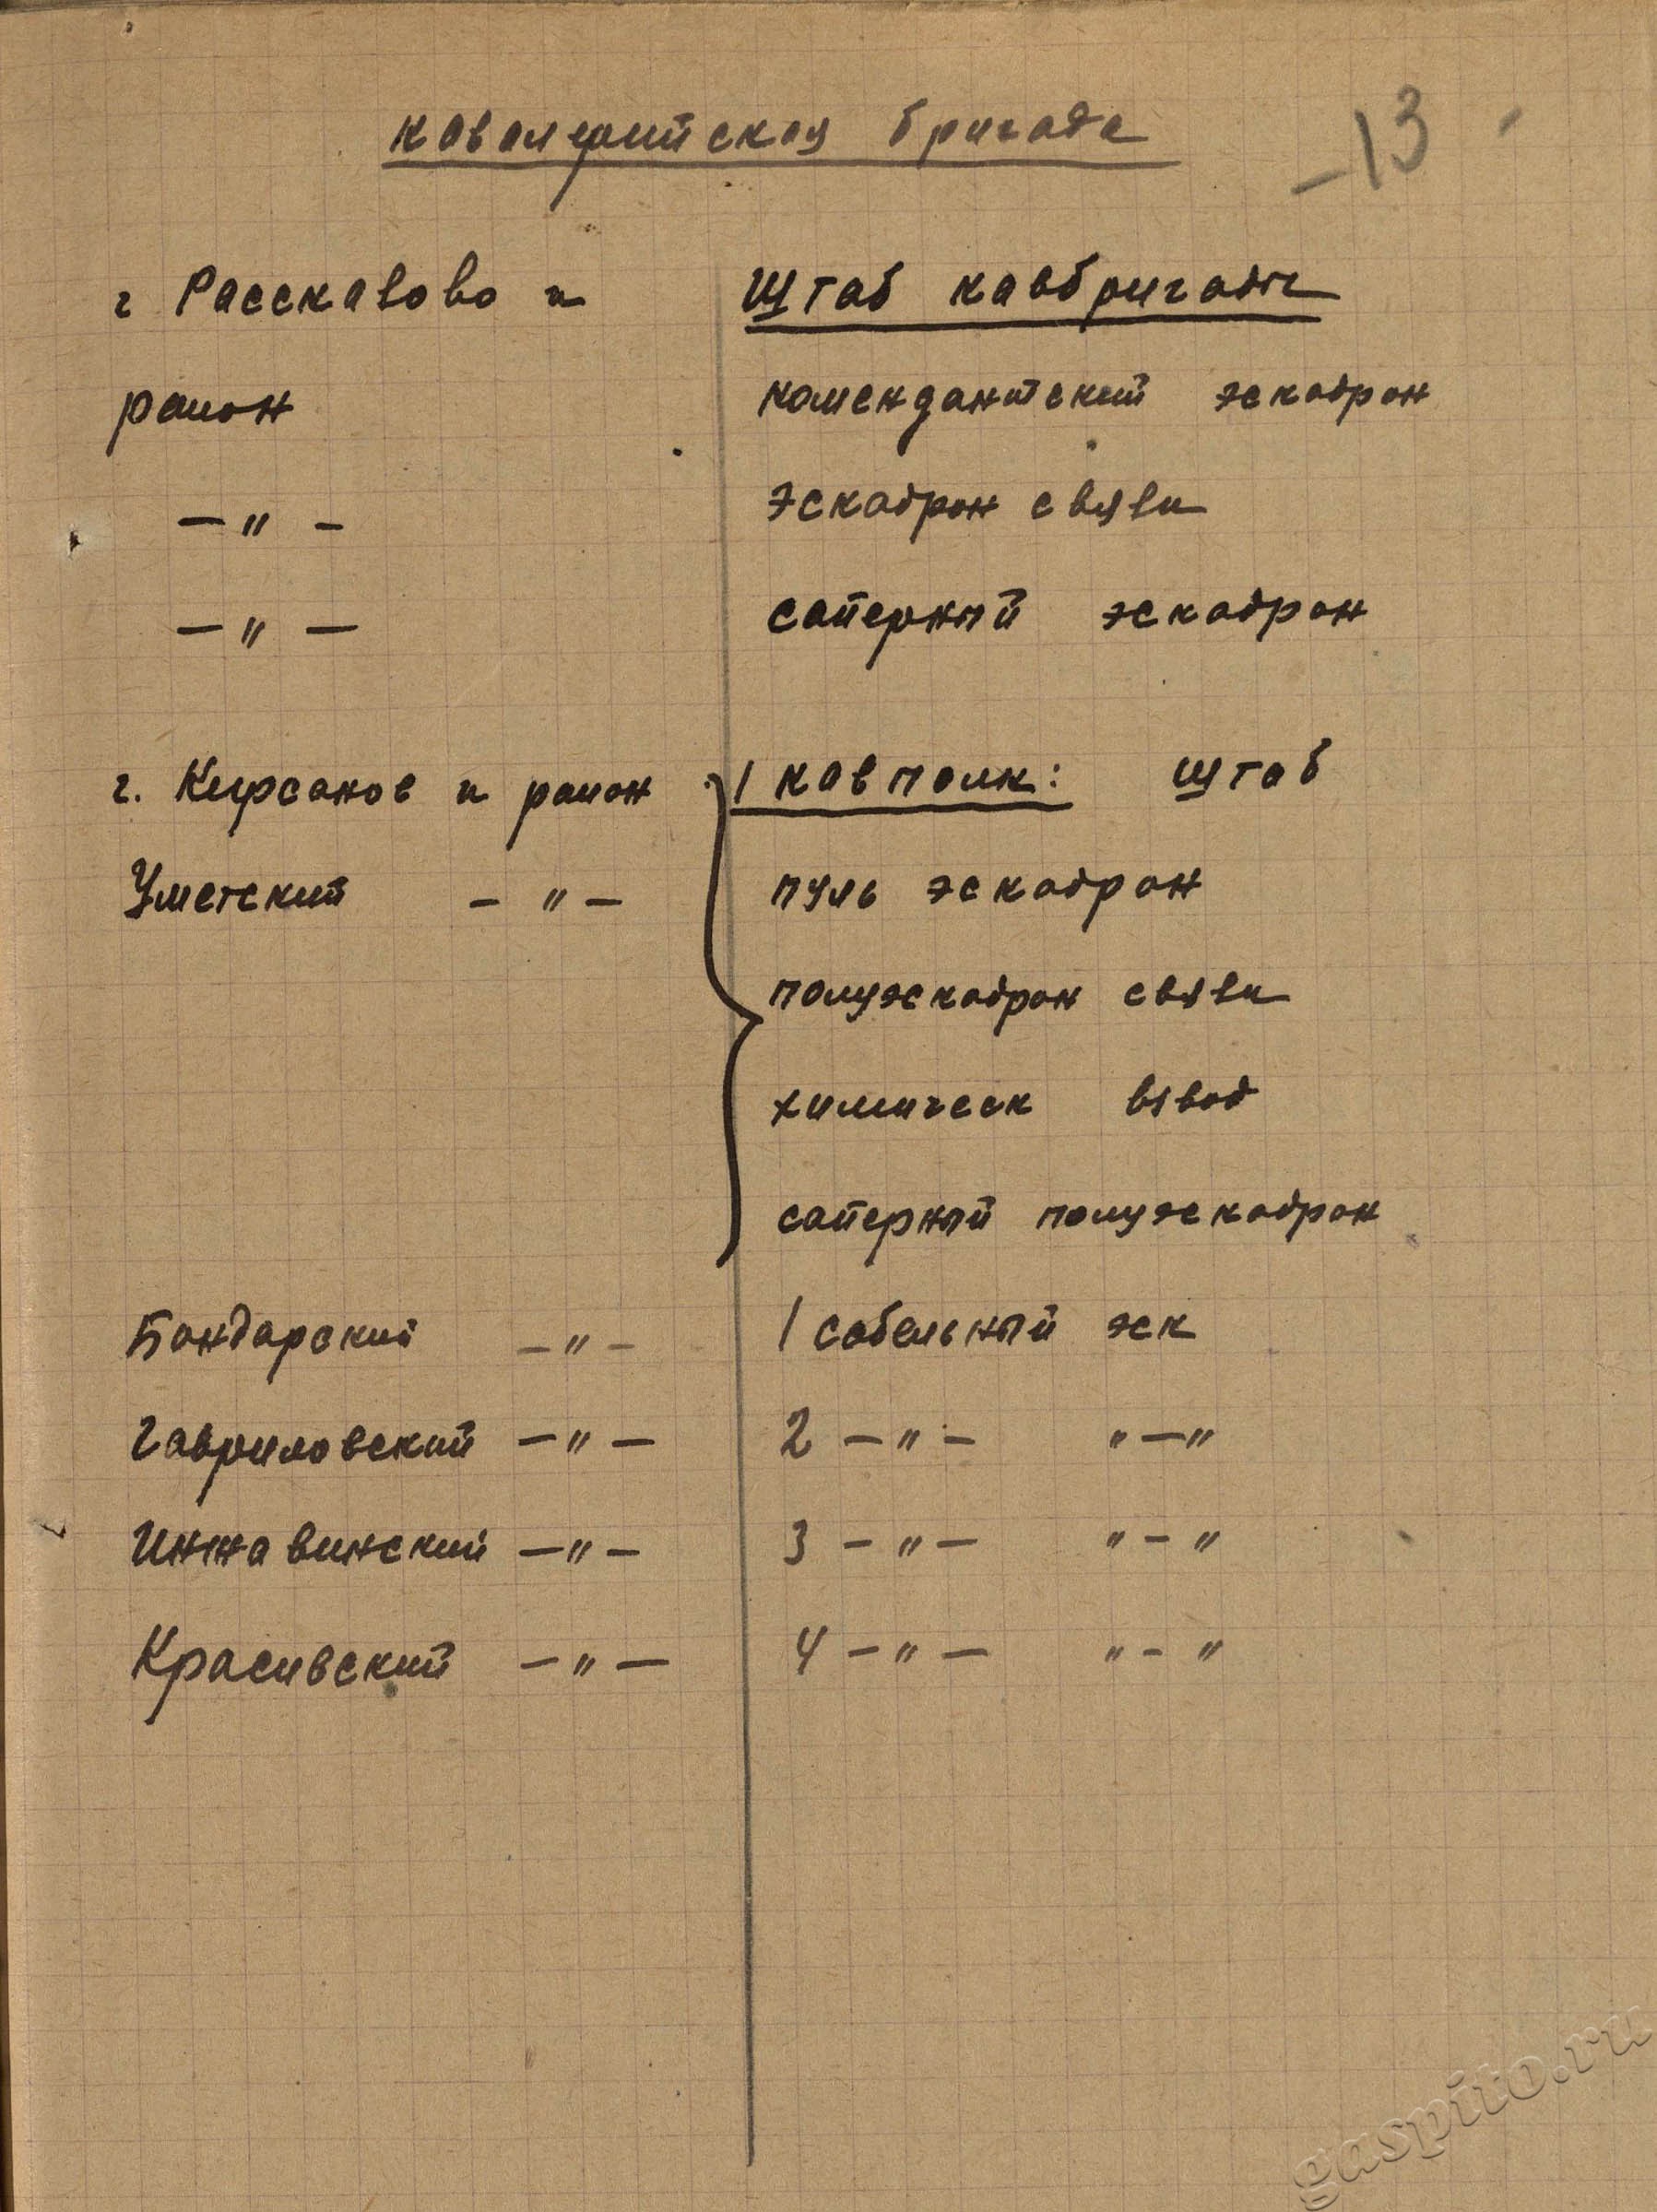 кавалерийская бригада
-13
г Рассказово и Штаб кавбригады
район комендантский эскадрон
— " — эскадрон связи
— " — саперный эскадрон
г. Кирсанов и район 1 кавполк: штаб
Уметский — " — пуль эскадрон
полуэскадрон связи
химическ взвод
саперный полуэскадрон
Бондарский — " — 1 сабельный эск
Гавриловский — " — 2 — " — " — "
Инжавинский — " — 3 — " — " — "
Красивский — " — 4 — " — " — "
gaspito.ru